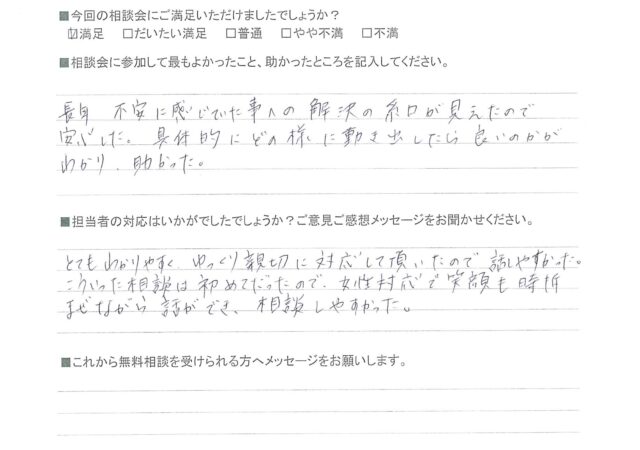 ■今回の相談会にご満足いただけましたでしょうか？
☑満足 □だいたい満足 □普通 □やや不満 □不満
■相談会に参加して最もよかったこと、助かったところを記入してください。
長年 不安に感じていた事への解決の糸口が見えたので
安心した。具体的にどの様に動き出したら良いのかが
わかり、助かった。
■担当者の対応はいかがでしたでしょうか？ご意見ご感想メッセージをお聞かせください。
とてもわかりやすく、ゆっくり親切に対応して頂いたので話しやすかった。
こういった相談は初めてだったので、女性対応で笑顔も時折
まぜながら話ができ、相談しやすかった。
■これから無料相談を受けられる方へメッセージをお願いします。